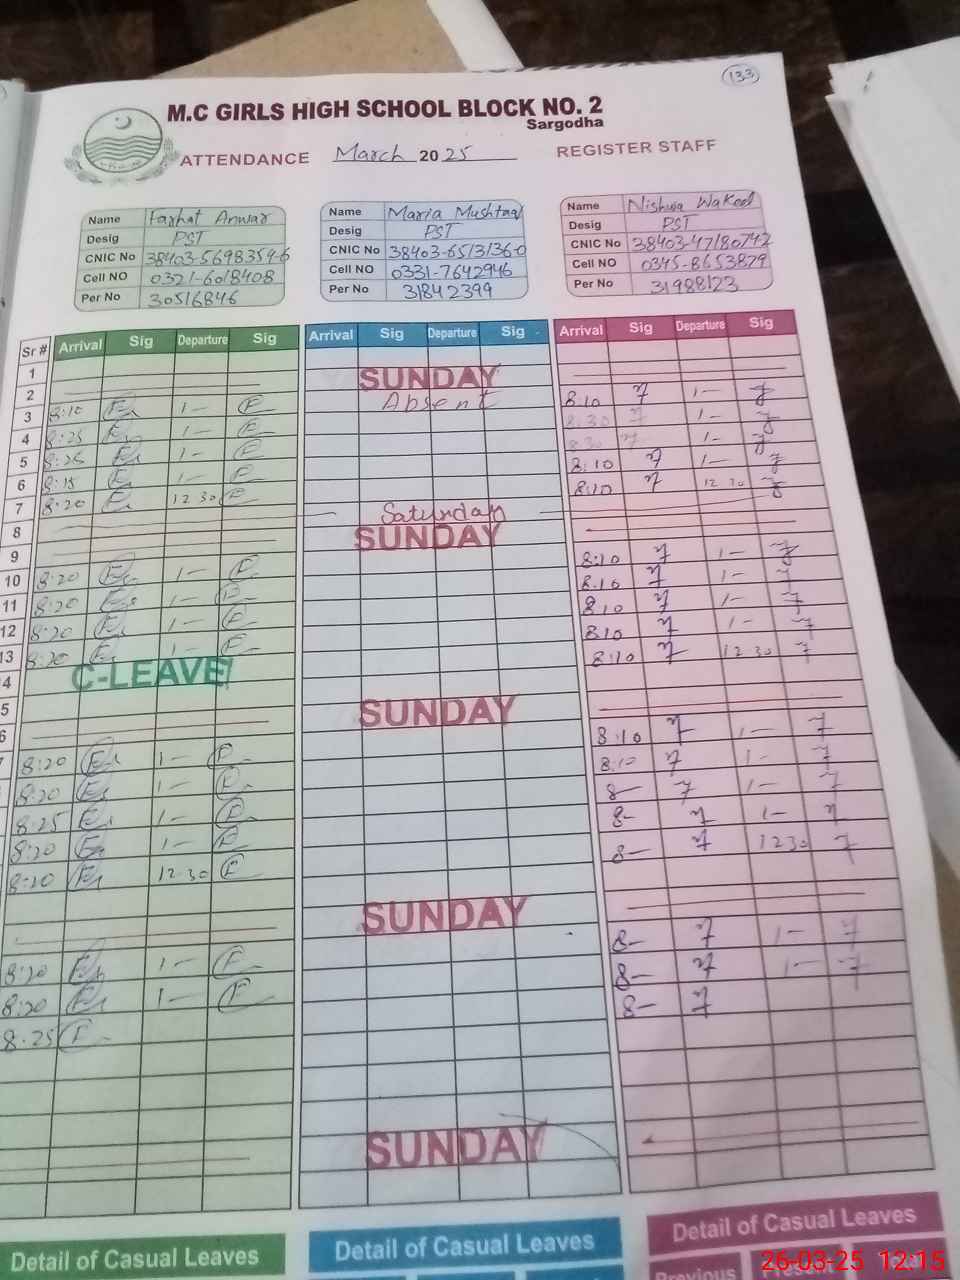 133
M.C GIRLS HIGH SCHOOL BLOCK NO. 2
Sargodha
ATTENDANCE March 2025 REGISTER STAFF
Name Farhat Anwar
Desig PST
CNIC No 38403-5698359-6
Cell NO 0321-6018408
Per No 30516846
Name Maria Mushtaq
Desig PST
CNIC No 38403-6513136-0
Cell NO 0331-7642946
Per No 31842399
Name Nishwa Waheed
Desig PST
CNIC No 38403-4718074-2
Cell NO 0345-8653879
Per No 31988123
Sr # Arrival Sig Departure Sig Arrival Sig Departure Sig Arrival Sig Departure Sig
1
2 SUNDAY
3 8:10 1- Absent 8:10 1-
4 8:25 1- 8:30 1-
5 8:25 1- 8:30 1-
6 8:15 1- 8:10 1-
7 8:20 12 30 8:10 12 30
8 Saturday
9 SUNDAY
10 8:20 1- 8:10 1-
11 8:20 1- 8:10 1-
12 8:20 1- 8:10 1-
13 8:20 1- 8:10 1-
4 C-LEAVE 8:10 12 30
5
6 SUNDAY
7 8:20 1- 8:10 1-
8:20 1- 8:10 1-
8:25 1- 8- 1-
8:20 1- 8- 1-
8:20 12 30 8- 12 30
SUNDAY
8:20 1- 8- 1-
8:20 1- 8- 1-
8:25 8-
SUNDAY
Detail of Casual Leaves Detail of Casual Leaves Detail of Casual Leaves
Previous Present
26-03-25 12:15